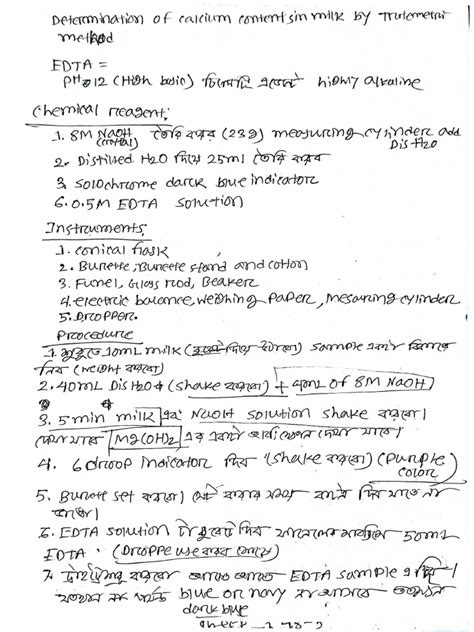 Determination of calcium contents in milk by Trutemetric
method
EDTA =
PH 12 (High basic) highly alkaline
Chemical reagent:
1. 8M NaOH তৈরি করব (23g) measuring cylinder add
(metal) Dis H2O
2. Distilled H2O দিয়ে 25ml তৈরি করব
3. Solochrome darck blue indicator
6. 0.5M EDTA solution
Instruments:
1. conical flask
2. Burette, Burette stand and cotton
3. Funel, Glass rod, Beaker
4. electric balance, weighing paper, mesuring cylinder
5. Dropper.
Procedure
1. 10mL milk sample একটা
নিব (weight করবো)
2. 40mL Dis H2O + (shake করবো) + 4mL of 8M NaOH
3. 5 min milk এবং NaOH solution shake করবো।
দেখা যাবে Mg(OH)2 এর একটা দেখা যাবে।
4. 6 droop indicator দিব (shake করবো) (Purple
color)
5. Burette set করবো।
6. EDTA solution টা বুরেটে দিব 50mL
EDTA. (Droppe use করব)
7. করবো আস্তে আস্তে EDTA sample এ দিব।
blue or navy না আসবে
dark blue